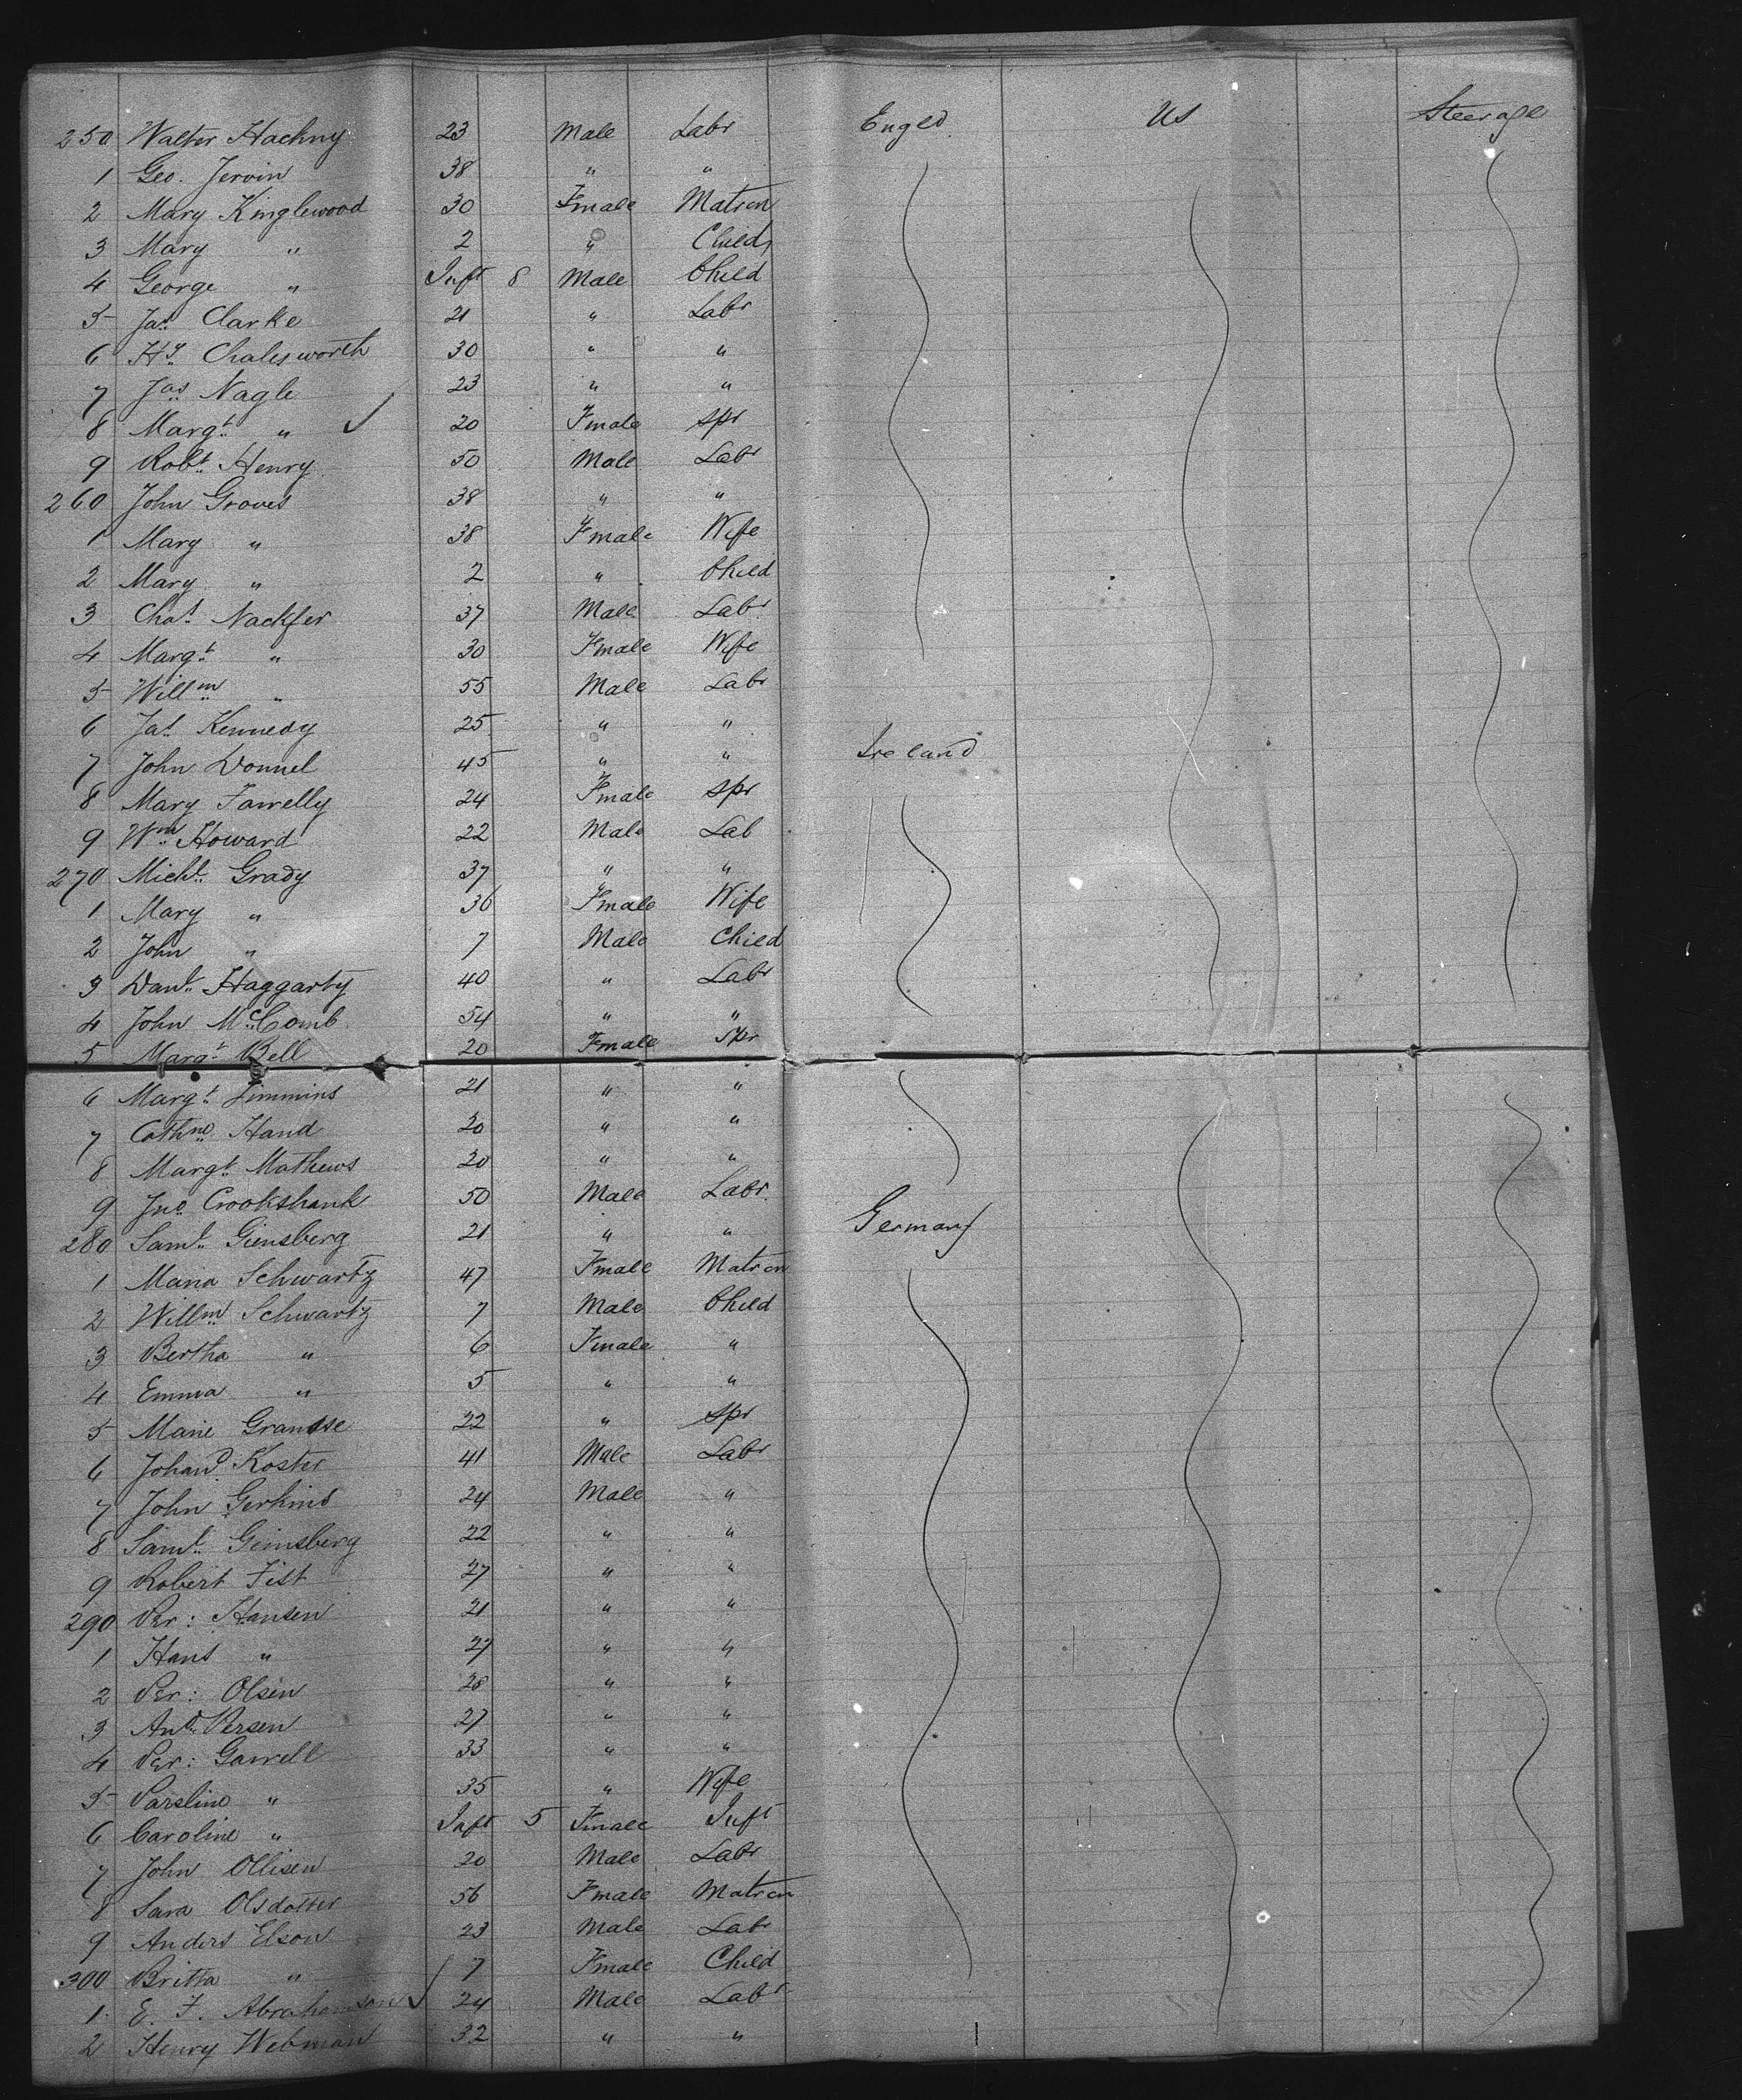 250 Walter Hachny 23 Male Labr Engld Us Steerage
1 Geo. Jervin 38 " "
2 Mary Kinglewood 30 Fmale Matron
3 Mary " 2 " Child
4 George " Inft 8 Male Child
5 Jas Clarke 21 " Labr
6 Hy Chalesworth 30 " "
7 Jas Nagle 23 " "
8 Margt " 20 Fmale Spr
9 Robt Henry 50 Male Labr
260 John Groves 38 " "
1 Mary " 38 Fmale Wife
2 Mary " 2 " Child
3 Chas Nackfer 37 Male Labr
4 Margt " 30 Fmale Wife
5 Willm " 55 Male Labr
6 Jas Kennedy 25 " "
7 John Donnel 45 " " Ireland
8 Mary Farrelly 24 Fmale Spr
9 Wm Howard 22 Male Lab
270 Michl Grady 37 " "
1 Mary " 36 Fmale Wife
2 John " 7 Male Child
3 Danl Haggarty 40 " Labr
4 John McComb 54 " "
5 Margt Bell 20 Fmale Spr
6 Margt Timmins 21 " "
7 Cathne Hand 20 " "
8 Margt Mathews 20 " "
9 Jno Crookshank 50 Male Labr
280 Saml Giensberg 21 " " Germany
1 Maria Schwartz 47 Fmale Matron
2 Willm Schwartz 7 Male Child
3 Bertha " 6 Fmale "
4 Emma " 5 " "
5 Marie 22 " Spr
6 Johand Koster 41 Male Labr
7 John Gerkins 24 Male "
8 Saml Geinsberg 22 " "
9 Robert Fist 27 " "
290 Per: Hansen 21 " "
1 Hans " 27 " "
2 Per: Olsen 28 " "
3 And Persen 27 " "
4 Per: Garrell 33 " "
5 " 35 " Wife
6 Caroline " Inft 5 Fmale Inft
7 John Ollisen 20 Male Labr
8 Sara Olsdotter 56 Fmale Matron
9 Anders Elson 23 Male Labr
300 Britta " 7 Fmale Child
1 E. F. Abrahamson 24 Male Labr
2 Henry Webman 32 " "